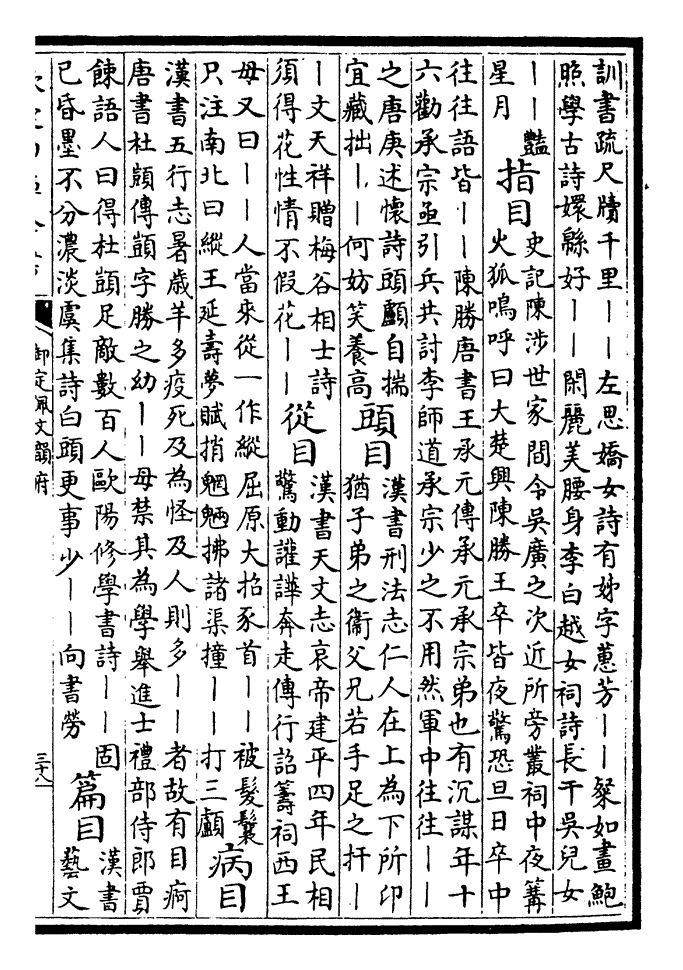 訓書疏尺牘千里丨丨左思嬌女詩有姊字蕙芳丨丨粲如畫鮑
照學古詩嬛緜好丨丨閑麗美腰身李白越女祠詩長干吳兒女
丨丨豔
星月
指目
史記陳涉世家間令吳廣之次近所旁叢祠中夜篝
火狐鳴呼曰大楚興陳勝王卒皆夜驚恐旦日卒中
往往語皆丨丨陳勝唐書王承元傳承元承宗弟也有沉謀年十
六勸承宗亟引兵共討李師道承宗少之不用然軍中往往丨丨
之唐庚述懷詩頭顱自揣
宜藏拙丨丨何妨笑養高
頭目
漢書刑法志仁人在上為下所卬
猶子弟之衞父兄若手足之扞丨
丨文天祥贈梅谷相士詩
須得花性情不假花丨丨
從目
漢書天文志哀帝建平四年民相
驚動讙譁奔走傳行詔籌祠西王
母又曰丨丨人當來從一作縱屈原大招豕首丨丨被髮鬤
只注南北曰縱王延壽夢賦捎魍魎拂諸渠撞丨丨打三顱
病目
漢書五行志暑歲羊多疫死及為怪及人則多丨丨者故有目痾
唐書杜顗傳顗字勝之幼丨丨母禁其為學舉進士禮部侍郎賈
餗語人曰得杜顗足敵數百人歐陽修學書詩丨丨固
已昏墨不分濃淡虞集詩白頭更事少丨丨向書勞
篇目
漢書
藝文
御定佩文韻府